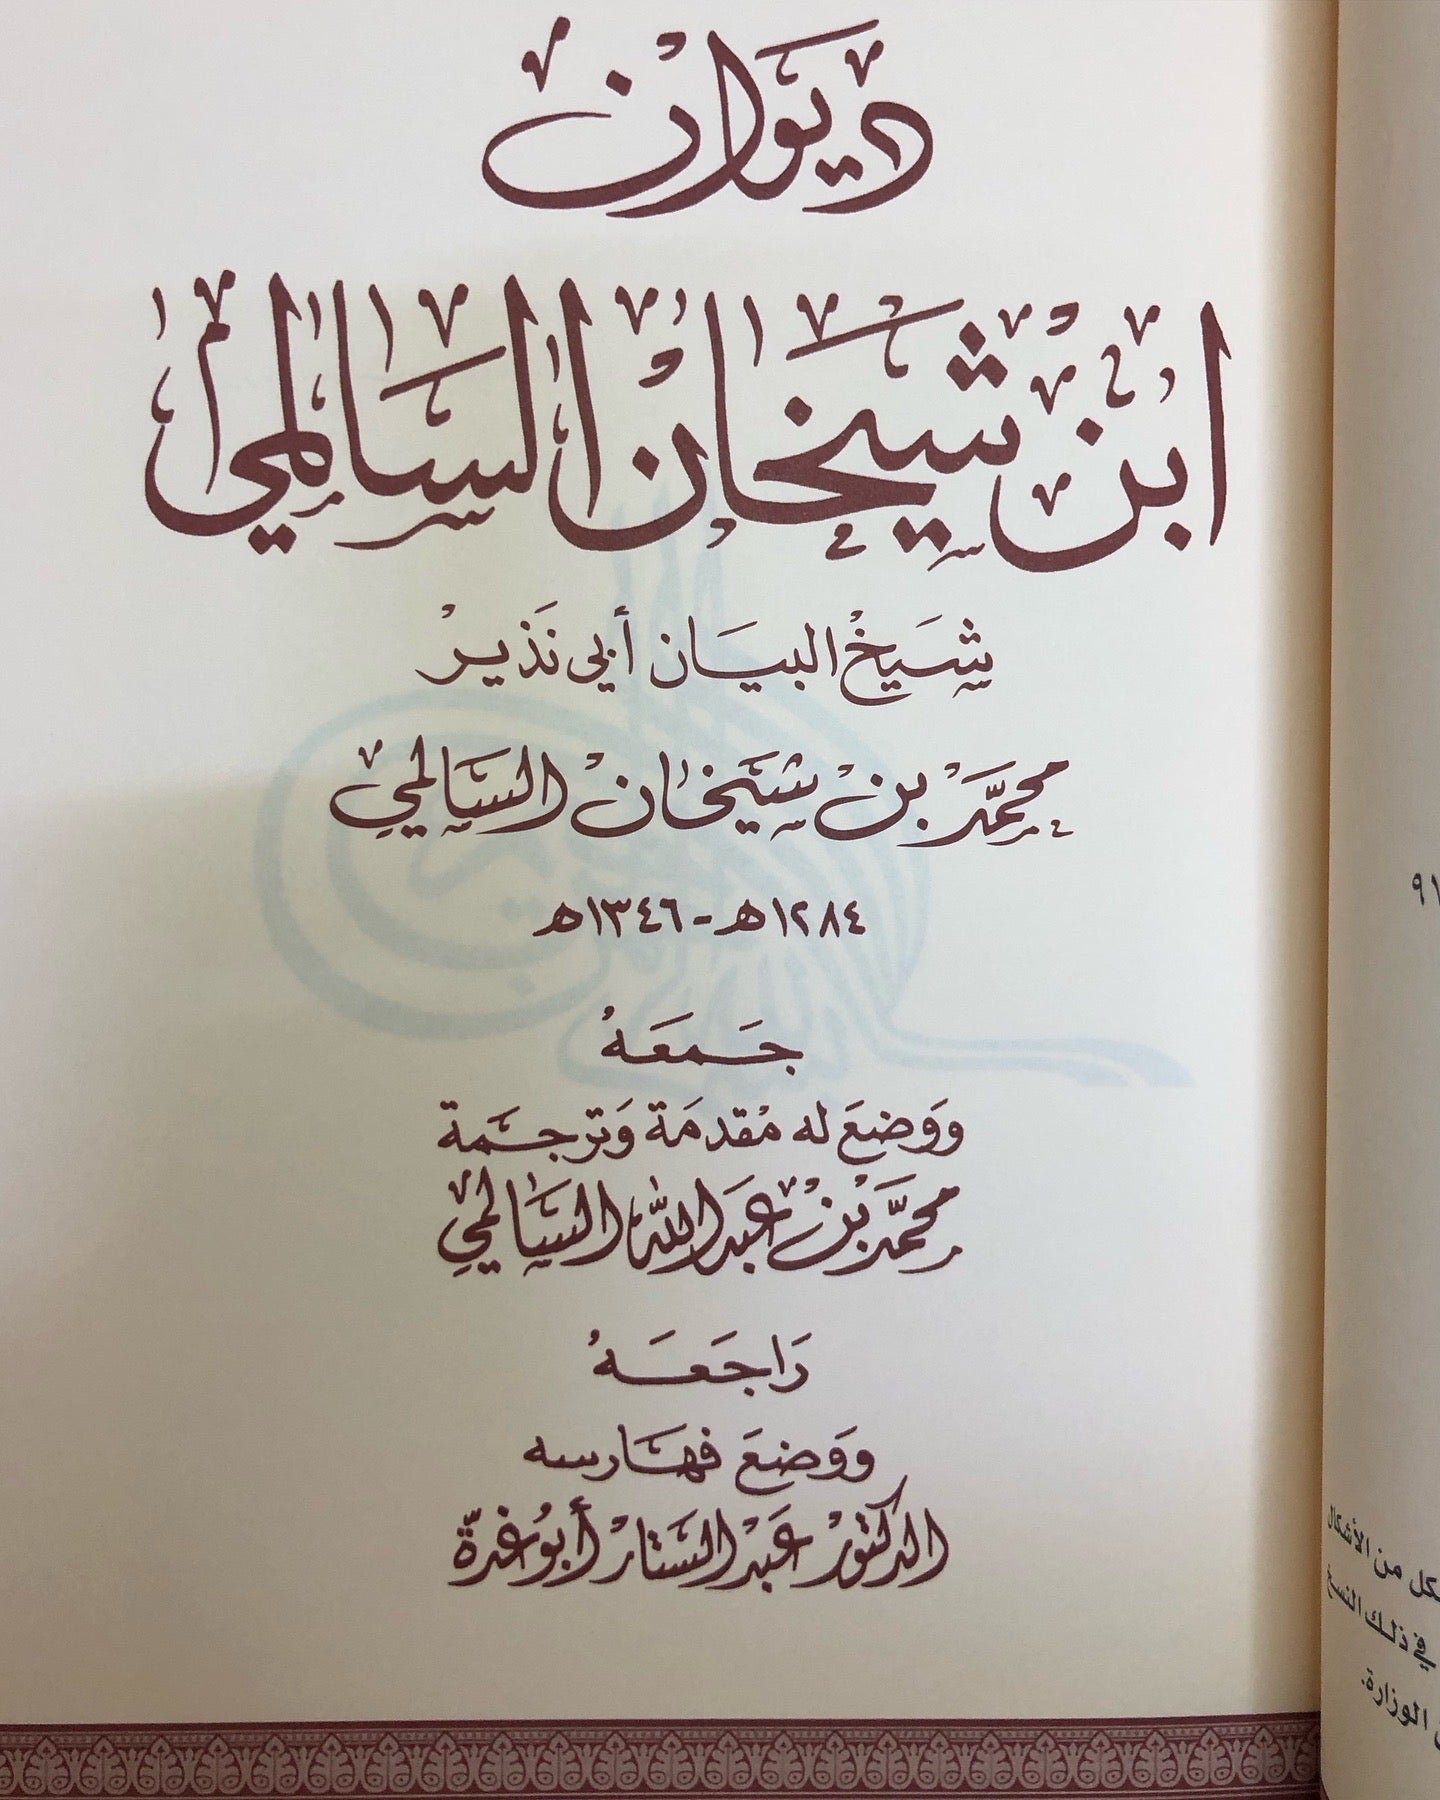 ديوان
ابن شيخان السالمي
شيخ البيان أبي نذير
محمد بن شيخان السالمي
١٢٨٤هـ - ١٣٤٦هـ
جمعه
ووضع له مقدمة وترجمة
محمد بن عبدالله السالمي
راجعه
ووضع فهارسه
الدكتور عبد الستار أبو غدة
٩١
كل من الأشكال
في ذلك النسخ
الوزارة.